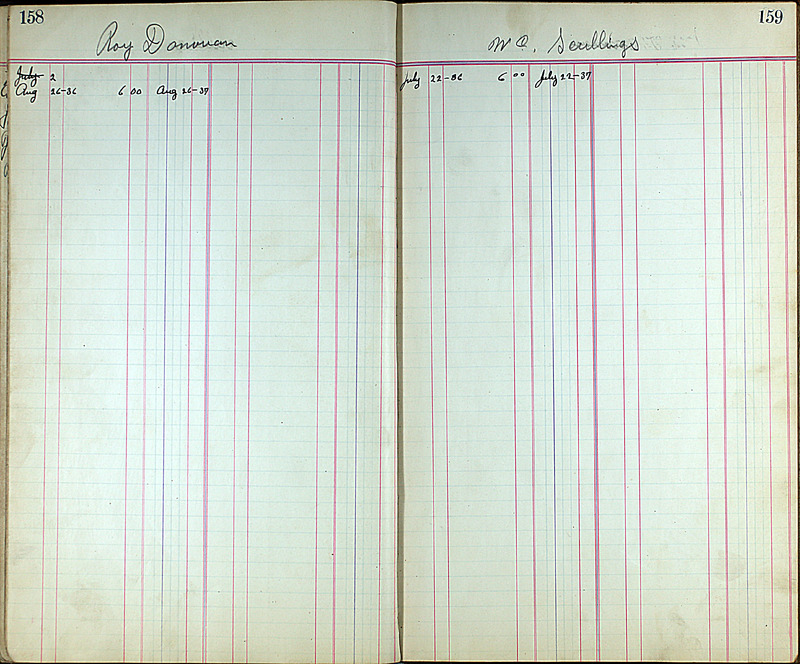 158
Roy Donovan
July 2
Aug 26-36 6 00 Aug 26-37
159
W C. Scullings
July 22-36 6 00 July 22-37